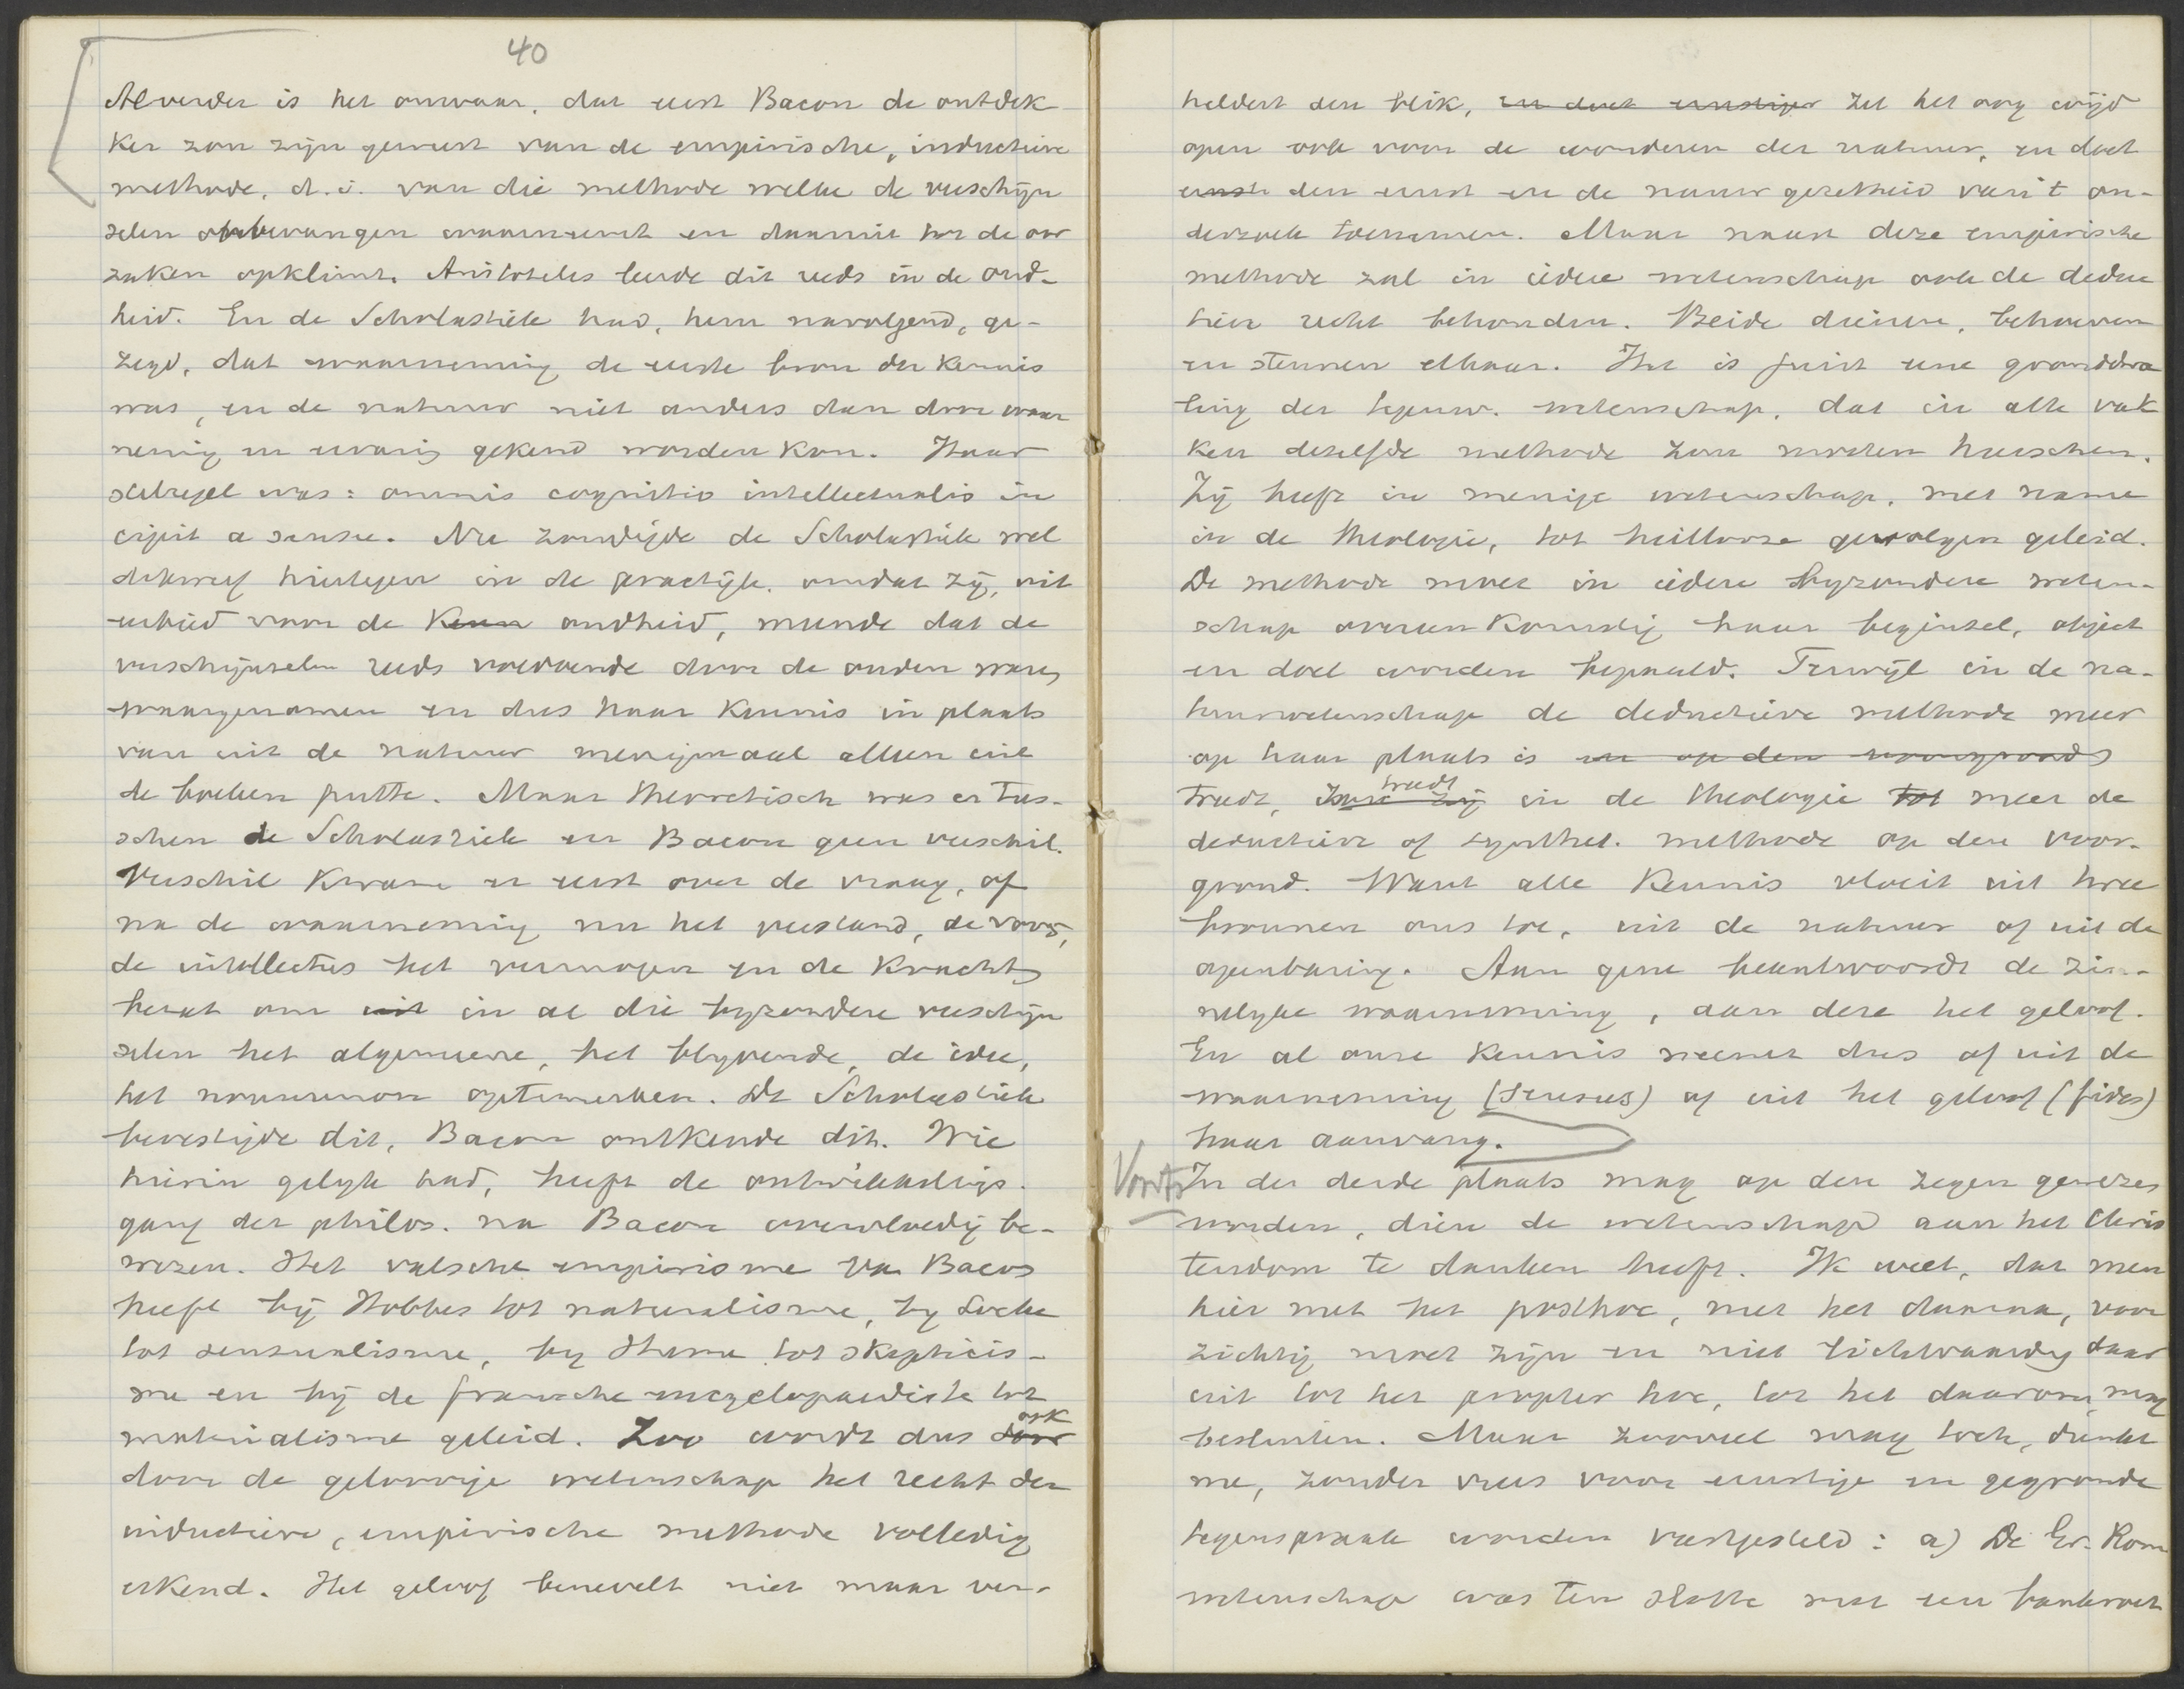 40
Alverder is het onwaar, dat eerst Bacon de ontdek
ker zou zijn geweest van de empirische, inductieve
methode, d.i. van die methode welke de verschijn
selen onbevangen waarneemt en daarna tot de oor
zaken opklimt. Aristoteles leerde dit reeds in de oud-
heid. En de Scholastiek had, hem navolgend, ge-
zegd, dat waarneming de eerste bron der kennis
was, en de natuur niet anders dan door waar
neming en ervaring gekend worden kon. Haar
stelregel was: omnis cognitio intellectualis in
cipit a sensu. Nu zondigde de Scholastiek wel
dikwerf hiertegen in de practijk, omdat zij, uit
eerbied voor de oudheid, meende dat de
verschijnselen reeds voldoende door de ouden waren
waargenomen en dus haar kennis in plaats
van uit de natuur menigmaal alleen uit
de boeken putte. Maar theoretisch was er tus-
schen de Scholastiek en Bacon geen verschil.
Verschil kwam er eerst over de vraag, of
na de waarneming nu het verstand, de
de intellectus het vermogen en de kracht
bezat om uit in al die byzondere verschijn
selen het algemeene, het blyvende, de idee,
het noumenon optemerken. De Scholastiek
bevestigde dit, Bacon ontkende dit. Wie
hierin gelyk had, heeft de ontwikkelings-
gang der philos. na Bacon overvloedig be-
wezen. Het valsche empirisme van Bacon
heeft bij Hobbes tot naturalisme, by Locke
tot sensualisme, by Hume tot skepticis-
me en bij de fransche encyclopaedisten tot
materialisme geleid. Zoo wordt dus ook
door de geloovige wetenschap het recht der
inductieve, empirische methode volledig
erkend. Het geloof benevelt niet maar ver-
heldert den blik, en doet ernstiger zet het oog wijd
open ook voor de wonderen der natuur, en doet
ernst den ernst en de nauwgezetheid van 't on-
derzoek toenemen. Maar naast deze empirische
methode zal in iedere wetenschap ook de deduc
tieve recht behouden. Beide dienen, behoeven
en steunen elkaar. Het is juist eene gronddwa
ling der tegenw. wetenschap, dat in alle vak
ken dezelfde methode zou moeten heerschen.
Zij heeft in menige wetenschap, met name
in de theologie, tot heillooze gevolgen geleid.
De methode moet in iedere byzondere weten-
schap overeenkomstig haar beginsel, object
en doel worden bepaald. Terwijl in de na-
tuurwetenschap de deductieve methode meer
op haar plaats is en op den voorgrond
treedt, treedt in de theologie tot meer de
deductieve of synthet. methode op den voor-
grond. Want alle kennis vloeit uit twee
bronnen ons toe, uit de natuur of uit de
openbaring. Aan gene beantwoordt de zin-
nelyke waarneming, aan deze het geloof.
En al onze kennis neemt dus of uit de
waarneming (sensus) of uit het geloof (fides)
haar aanvang.
Voorts In der derde plaats mag op den zegen gewezen
worden, dien de wetenschap aan het Chris
tendom te danken heeft. Ik weet, dat men
hier met het post hoc, met het daarna, voor
zichtig moet zijn en niet lichtvaardig daar
uit tot het propter hoc, tot het daarom, mag
besluiten. Maar zooveel mag toch, dunkt
me, zonder vrees voor ernstige en gegronde
tegenspraak worden vastgesteld: a) De Gr. Rom
wetenschap was ten slotte met een bankroet